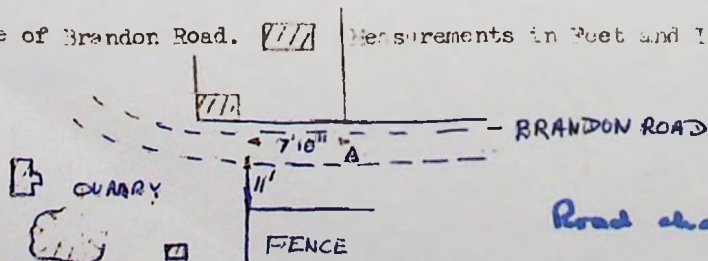 e of Brandon Road. Measurements in Feet and I
BRANDON ROAD
7'10"
A
11'
QUARRY
FENCE
Road